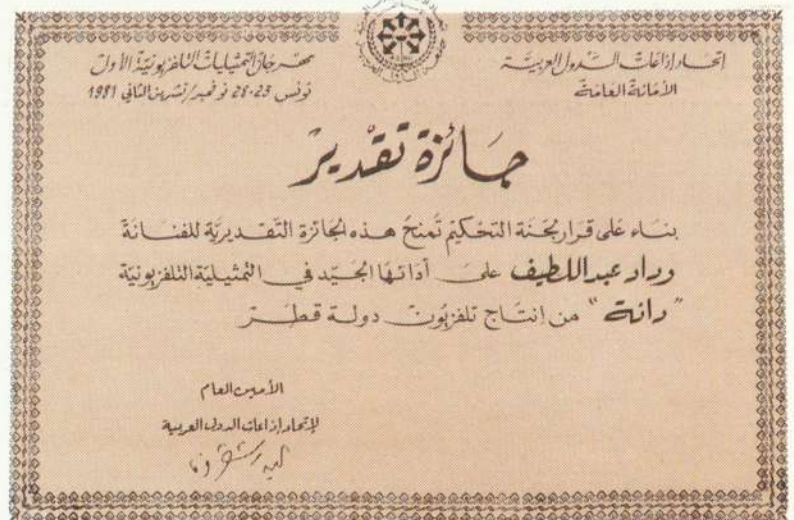 إتحاد إذاعات الدول العربية
الأمانة العامة
مهرجان التمثيليات التلفزيونية الأول
تونس 23-28 نوفمبر/تشرين الثاني 1981
جائزة تقدير
بناء على قرار لجنة التحكيم تمنح هذه الجائزة التقديرية للفنانة
وداد عبداللطيف على أدائها الجيد في التمثيلية التلفزيونية
"دانة" من إنتاج تلفزيون دولة قطر
الأمين العام
لإتحاد إذاعات الدول العربية